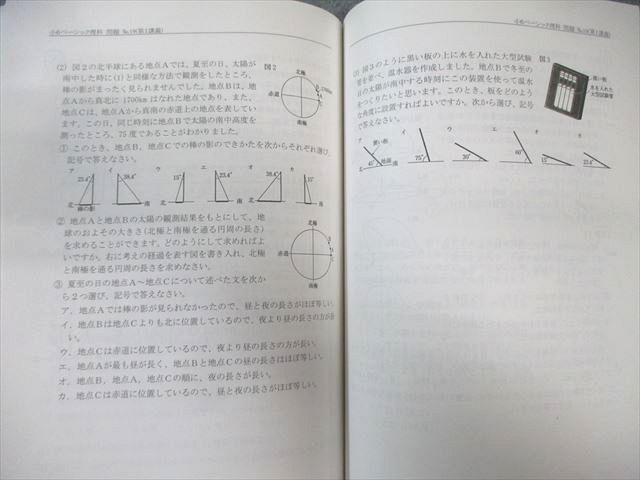 小6ベーシック理科 問題 No.19(第1講義)
(2) 図2の北半球にある地点Aでは、夏至の日、太陽が
南中した時に(1)と同様な方法で観測をしたところ、
棒の影がまったく見られませんでした。地点Bは、地
点Aから真北に1700kmはなれた地点であり、また、
地点Cは、地点Aから真南の赤道上の地点を表してい
ます。この日、同じ時刻に地点Bで太陽の南中高度を
測ったところ、75度であることがわかりました。
図2
北極
赤道
南極
① このとき、地点B、地点Cでの棒の影のできかたを次からそれぞれ選び、
記号で答えなさい。
ア イ ウ エ オ カ
23.4° 38.4° 15° 23.4° 38.4° 15°
北 南 北 南 北 南
棒の影
② 地点Aと地点Bの太陽の観測結果をもとにして、地
球のおよその大きさ(北極と南極を通る円周の長さ)
を求めることができます。どのようにして求めればよ
いですか。右に考えの経過を表す図を書き入れ、北極
と南極を通る円周の長さを求めなさい。
北極
赤道
南極
③ 夏至の日の地点A〜地点Cについて述べた文を次か
ら2つ選び、記号で答えなさい。
ア．地点Aでは棒の影が見られなかったので、昼と夜の長さがほぼ等しい。
イ．地点Bは地点Cよりも北に位置しているので、夜より昼の長さの方が長
い。
ウ．地点Cは赤道に位置しているので、夜より昼の長さの方が長い。
エ．地点Aが最も昼が長く、地点Bと地点Cの昼の長さはほぼ等しい。
オ．地点B、地点A、地点Cの順に、夜の長さが長い。
カ．地点Cは赤道に位置しているので、昼と夜の長さがほぼ等しい。
小6ベーシック理科 問題 No.19(第1講義)
(3) 図3のように黒い板の上に水を入れた大型試験
管を置く、温水器を作成しました。地点Bで冬至の
日の太陽が南中する時刻にこの装置を使って温水
をつくりたいと思います。このとき、板をどのよう
な角度に設置すればよいですか。次から選び、記号
で答えなさい。
図3
黒い板
水を入れた
大型試験管
ア イ ウ エ オ カ
黒い板
45° 地面 75° 30° 60° 15° 23.4°
北 南